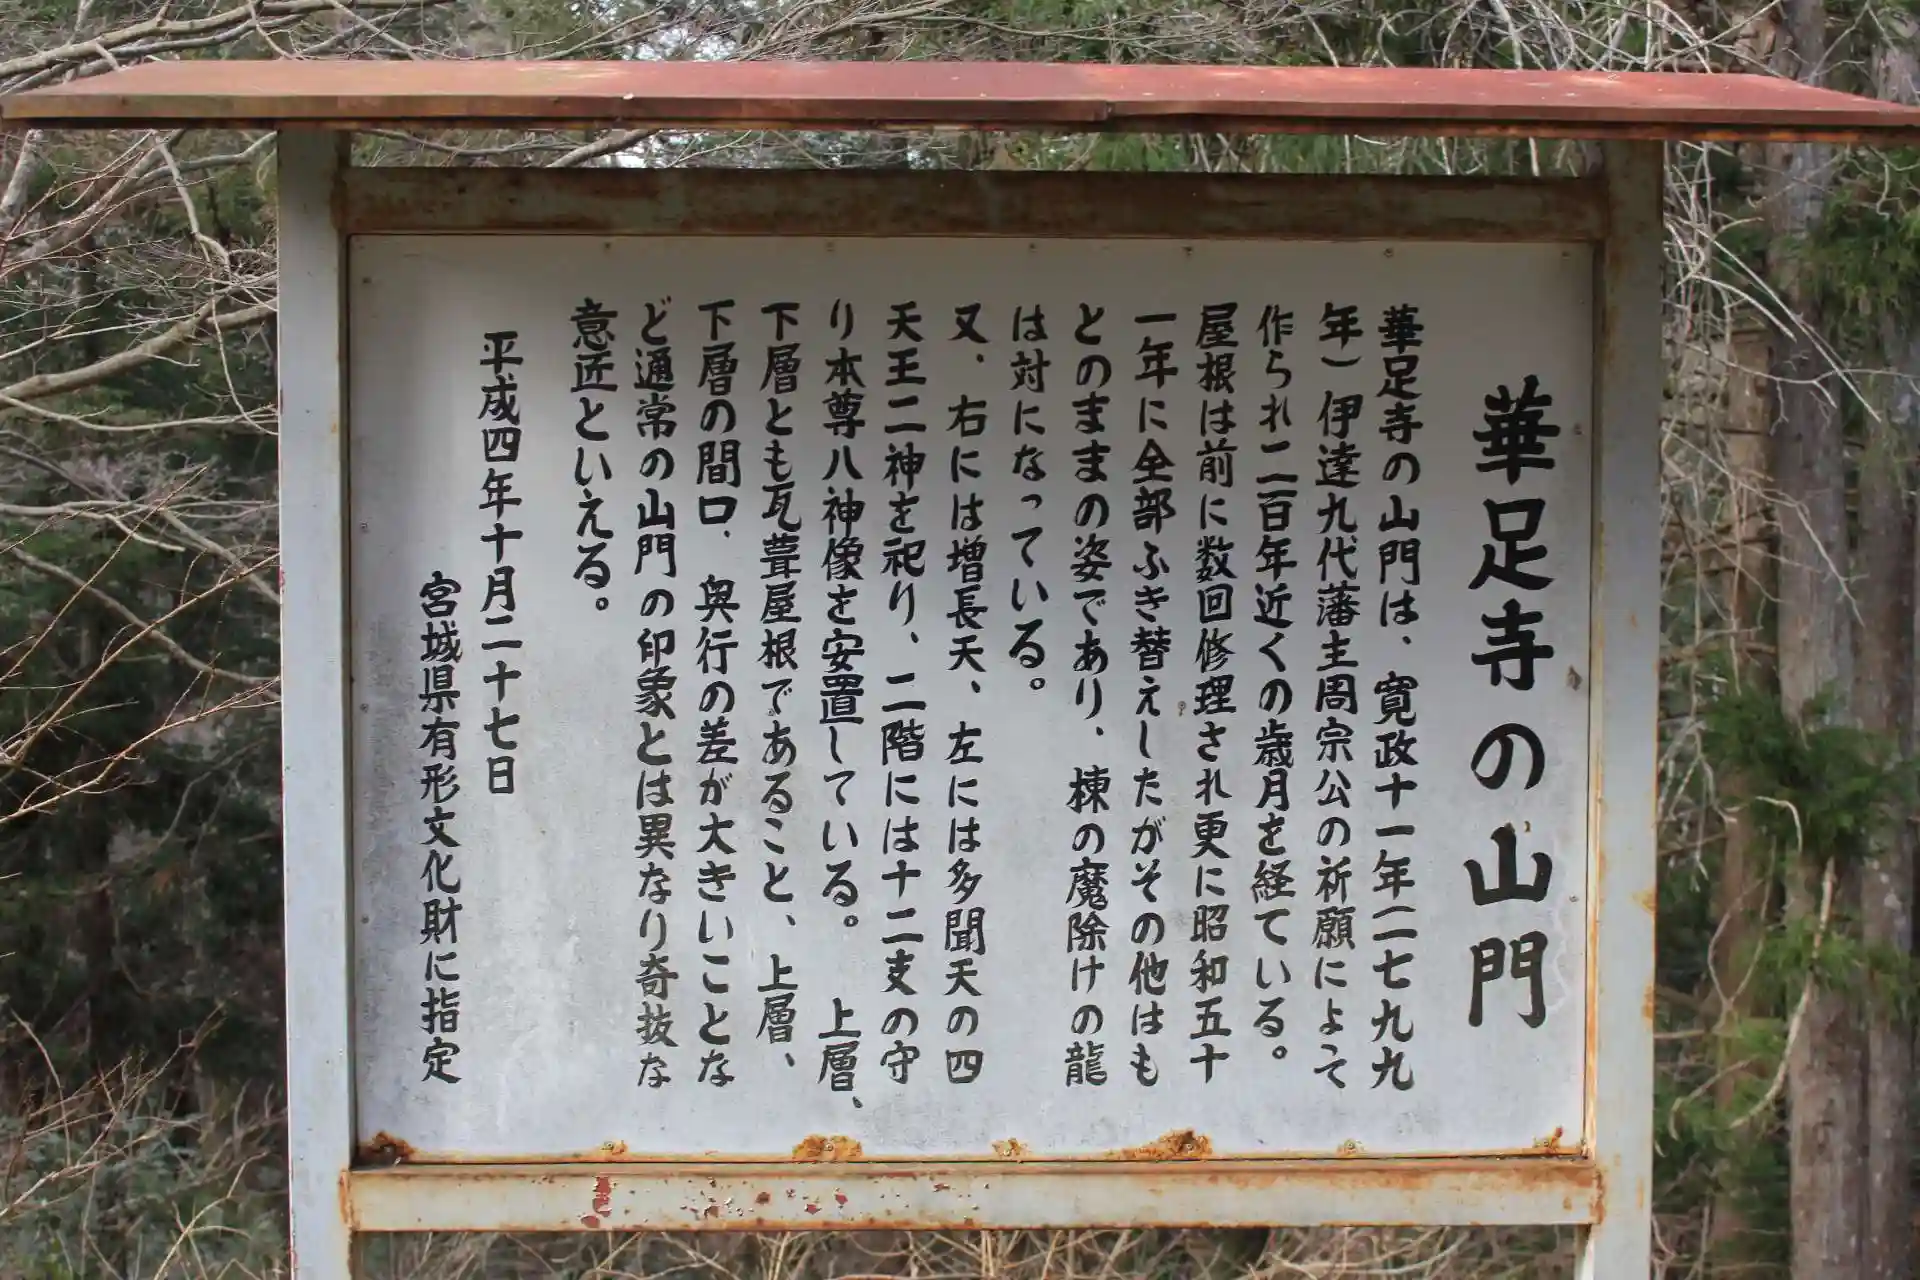 華足寺の山門
華足寺の山門は、寛政十一年(一七九九
年)伊達九代藩主周宗公の祈願によって
作られ二百年近くの歳月を経ている。
屋根は前に数回修理され更に昭和五十
一年に全部ふき替えしたがその他はも
とのままの姿であり、棟の魔除けの龍
は対になっている。
又、右には増長天、左には多聞天の四
天王二神を祀り、二階には十二支の守
り本尊八神像を安置している。 上層、
下層とも瓦葺屋根であること、上層、
下層の間口、奥行の差が大きいことな
ど通常の山門の印象とは異なり奇抜な
意匠といえる。
平成四年十月二十七日
宮城県有形文化財に指定